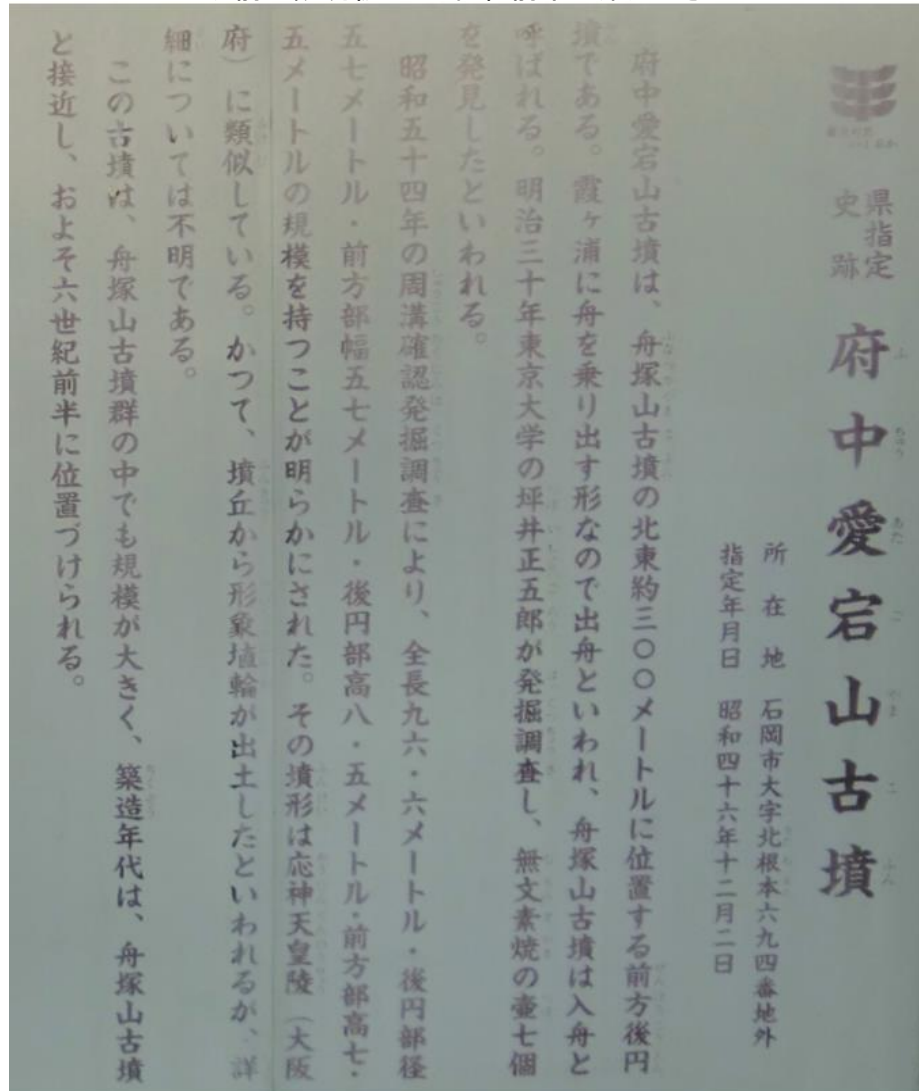 県指定
史跡
府中愛宕山古墳
所在地 石岡市大字北根本六九四番地外
指定年月日 昭和四十六年十二月二日
府中愛宕山古墳は、舟塚山古墳の北東約三〇〇メートルに位置する前方後円
墳である。霞ヶ浦に舟を乗り出す形なので出舟といわれ、舟塚山古墳は入舟と
呼ばれる。明治三十年東京大学の坪井正五郎が発掘調査し、無文素焼の壷七個
を発見したといわれる。
昭和五十四年の周溝確認発掘調査により、全長九六・六メートル・後円部径
五七メートル・前方部幅五七メートル・後円部高八・五メートル・前方部高七・
五メートルの規模を持つことが明らかにされた。その墳形は応神天皇陵（大阪
府）に類似している。かつて、墳丘から形象埴輪が出土したといわれるが、詳
細については不明である。
この古墳は、舟塚山古墳群の中でも規模が大きく、築造年代は、舟塚山古墳
と接近し、およそ六世紀前半に位置づけられる。